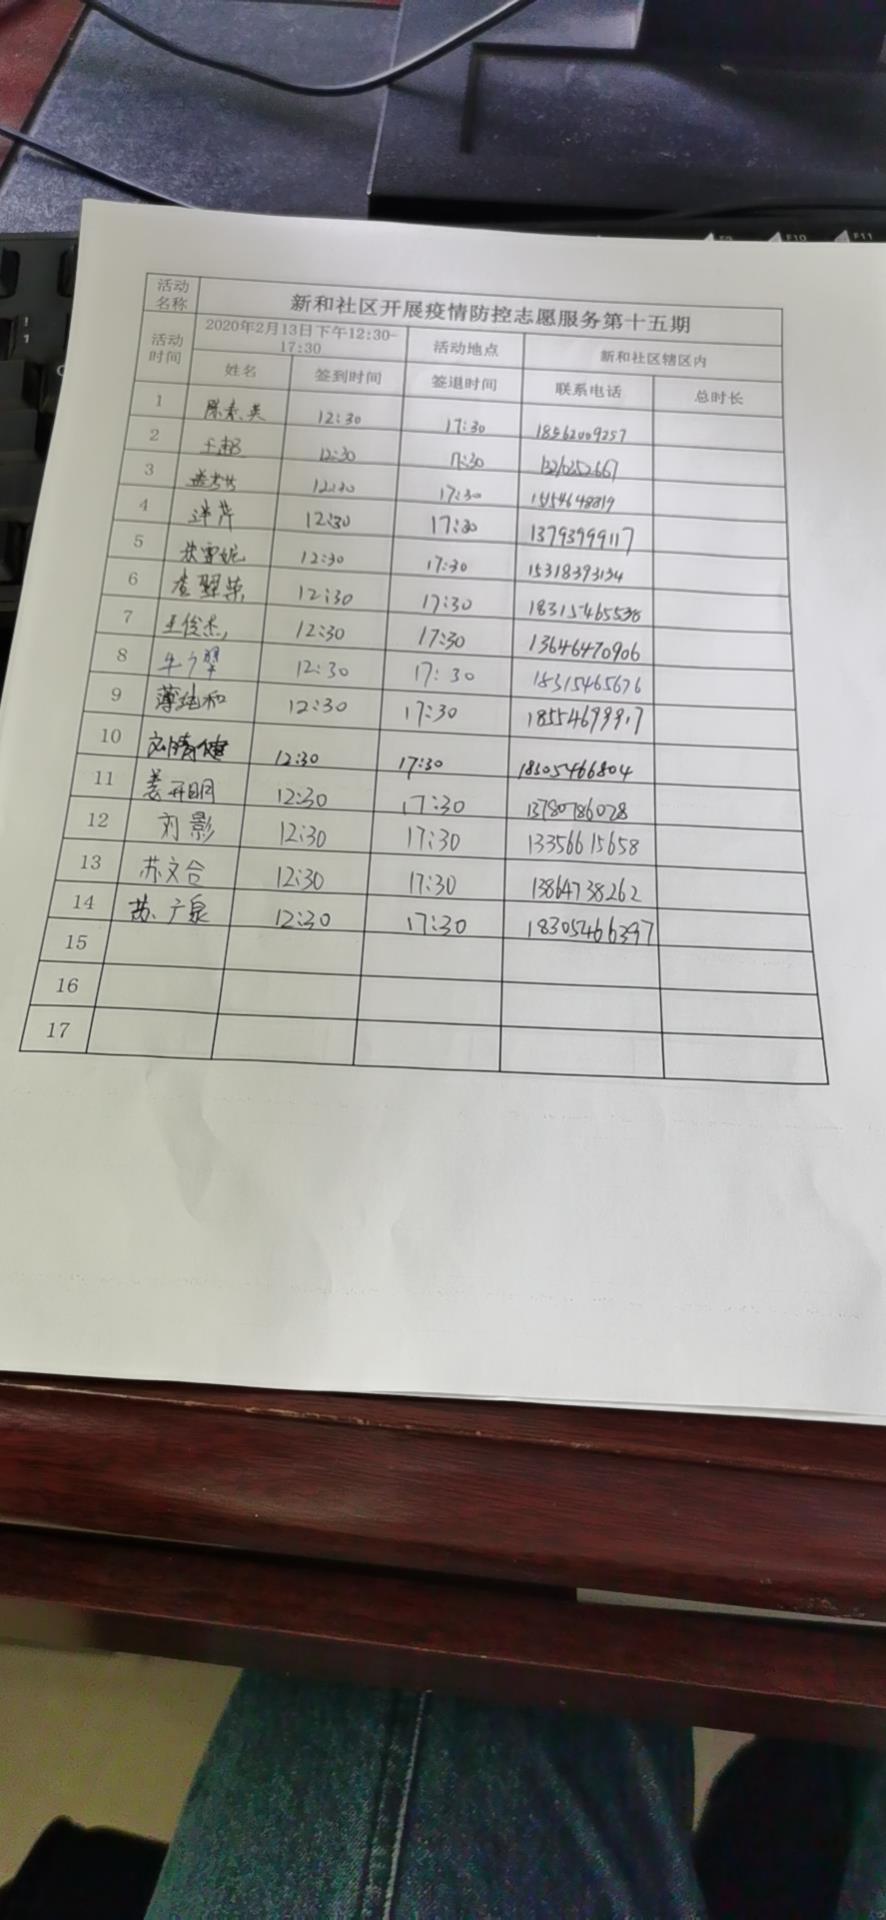 F9 F10 F11
活动名称 新和社区开展疫情防控志愿服务第十五期
活动时间 2020年2月13日下午12:30-17:30 活动地点 新和社区辖区内
姓名 签到时间 签退时间 联系电话 总时长
1 陈素英 12:30 17:30 18562009257
2 12:30 17:30
3 12:30 17:30
4 12:30 17:30 13793999117
5 12:30 17:30 15318393134
6 12:30 17:30 18315465538
7 王俊杰 12:30 17:30 13646470906
8 12:30 17:30 18315465676
9 12:30 17:30
10 刘清健 12:30 17:30 18305466804
11 姜开明 12:30 17:30 13780786028
12 刘影 12:30 17:30 13356615658
13 苏文合 12:30 17:30 13864738262
14 广泉 12:30 17:30 18305466397
15
16
17